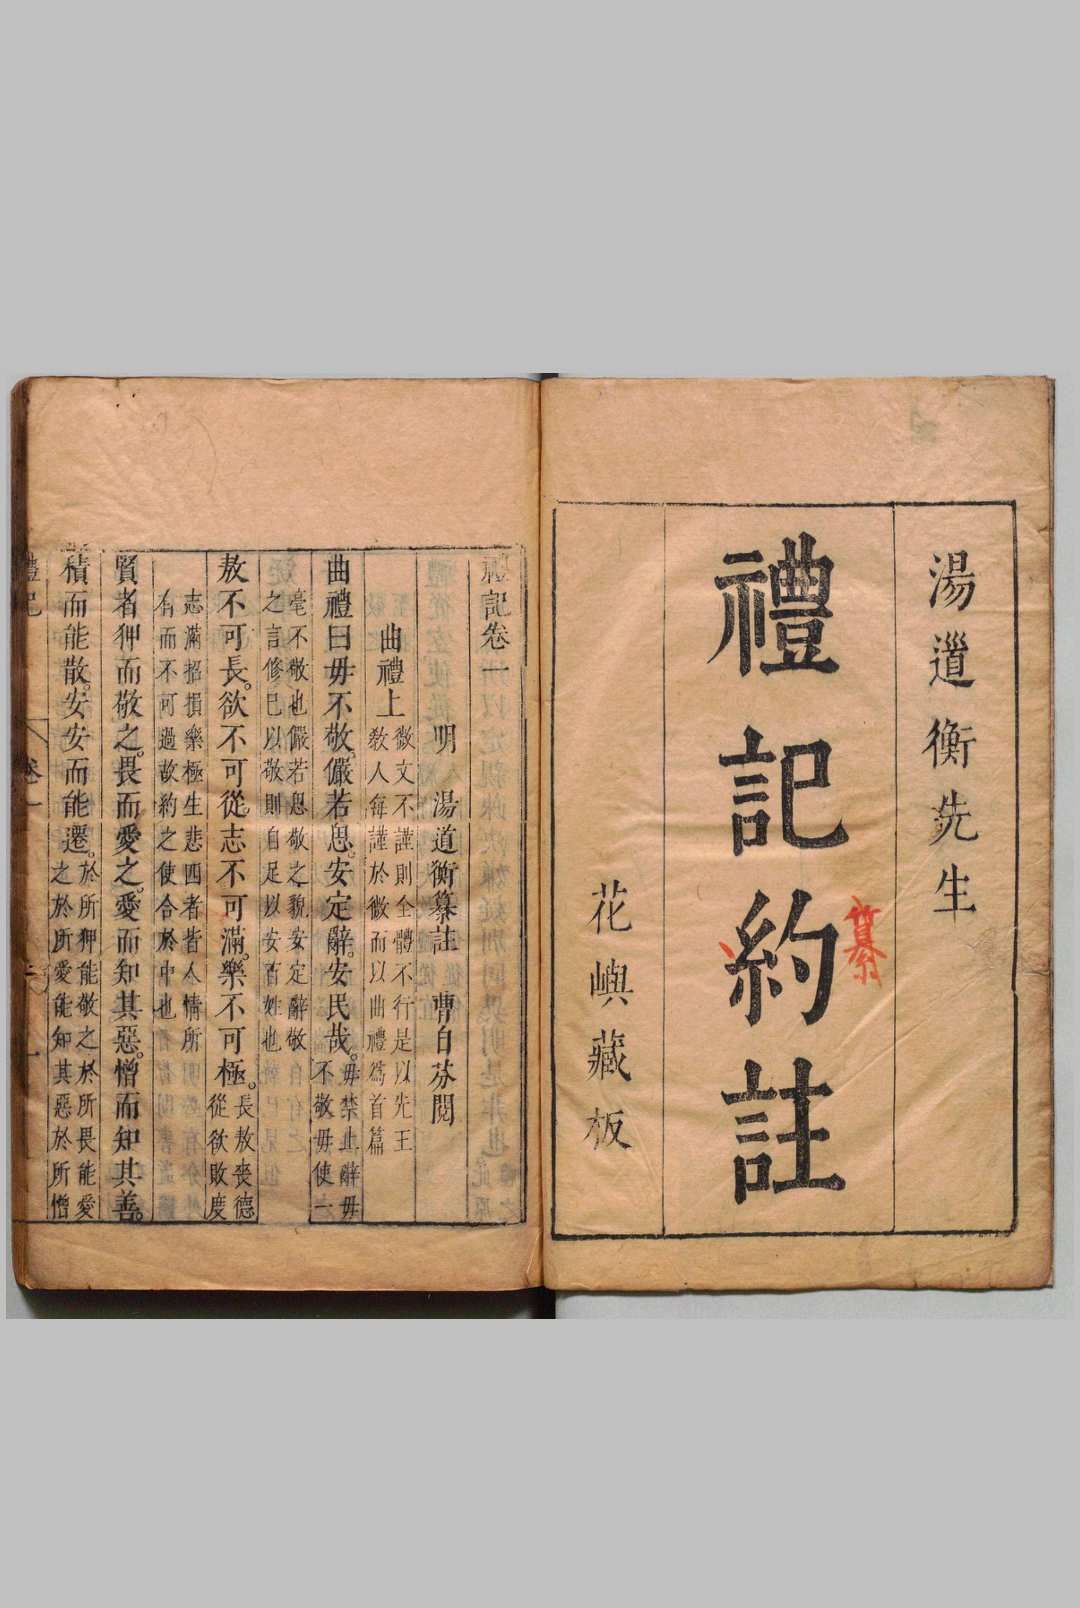 湯道衡先生
禮記約註
纂
花嶼藏板
禮記卷一
明 湯道衡纂註 曹自芬閱
曲禮上 微文不謹則全體不行是以先王
教人每謹於微而以曲禮為首篇
曲禮曰毋不敬儼若思安定辭安民哉 毋禁止辭毋
不敬毋使一
毫不敬也儼若思敬之貌安定辭敬
之言修已以敬則自足以安百姓也
敖不可長欲不可從志不可滿樂不可極 長敖喪德
從欲敗度
志滿招損樂極生悲四者皆人情所
有而不可過故約之使合於中也
賢者狎而敬之畏而愛之愛而知其惡憎而知其善
積而能散安安而能遷 於所狎能敬之於所畏能愛
之於所愛能知其惡於所憎
禮記 卷一 一